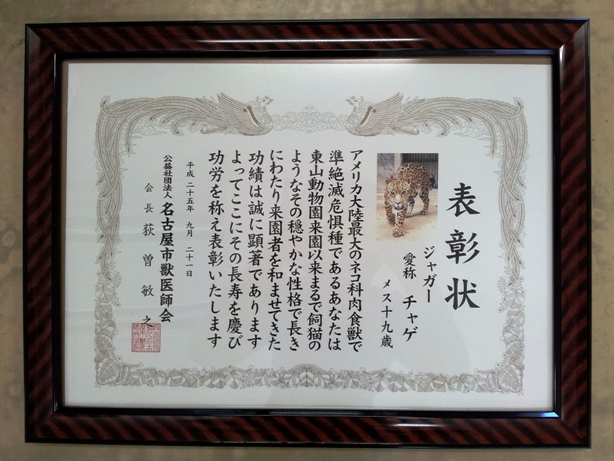 表彰状
ジャガー
愛称 チャゲ
メス十九歳
アメリカ大陸最大のネコ科肉食獣で
準絶滅危惧種であるあなたは
東山動物園来園以来まるで飼猫の
ようなその穏やかな性格で長き
にわたり来園者を和ませてきた
功績は誠に顕著であります
よってここにその長寿を慶び
功労を称え表彰いたします
平成二十五年九月二十一日
公益社団法人 名古屋市獣医師会
会長 荻曽敏之